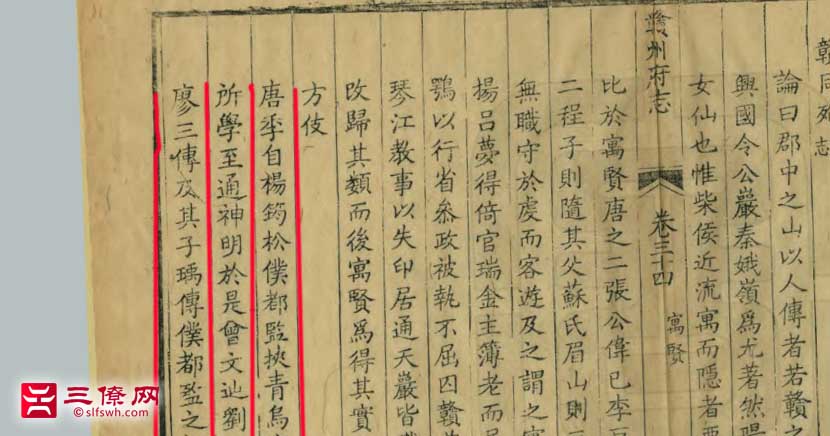 同死志
論曰郡中之山以人傳者若贛之
興國令公巖秦娥嶺爲尤著然陽
女仙也惟柴侯近流寓而隱者
贛州府志 卷三十四 寓賢
比於寓賢唐之二張公偉已李
二程子則隨其父蘇氏眉山則
無職守於虔而客遊及之謂之
揚呂夢得倚官瑞金主簿老而
鶚以行省叅政被執不屈囚贛
琴江教事以失印居通天巖皆
改歸其類而後寓賢爲得其實
方伎
唐季自楊筠松僕都監挾青烏
所學至通神明於是曾文辿劉
廖三傳及其子瑀傳僕都監之
三僚网
slfswh.com